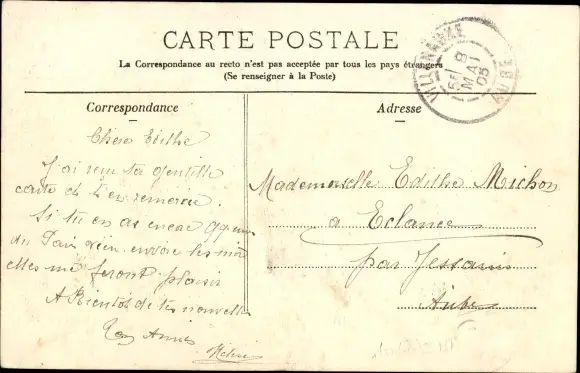 CARTE POSTALE
La Correspondance au recto n'est pas acceptée par tous les pays étrangers
(Se renseigner à la Poste)
Correspondance
Adresse
Chère Edithe
J'ai reçu ta gentille
carte et t'en remercie.
Si tu en as encore
du envoie les moi
elles me feront plaisir
A Bientôt de tes nouvelles
Ton Amie
Hélène
Mademoiselle Edithe Michon
à Eclance
par Jessains
Aube
8
MAI
05
AUBE